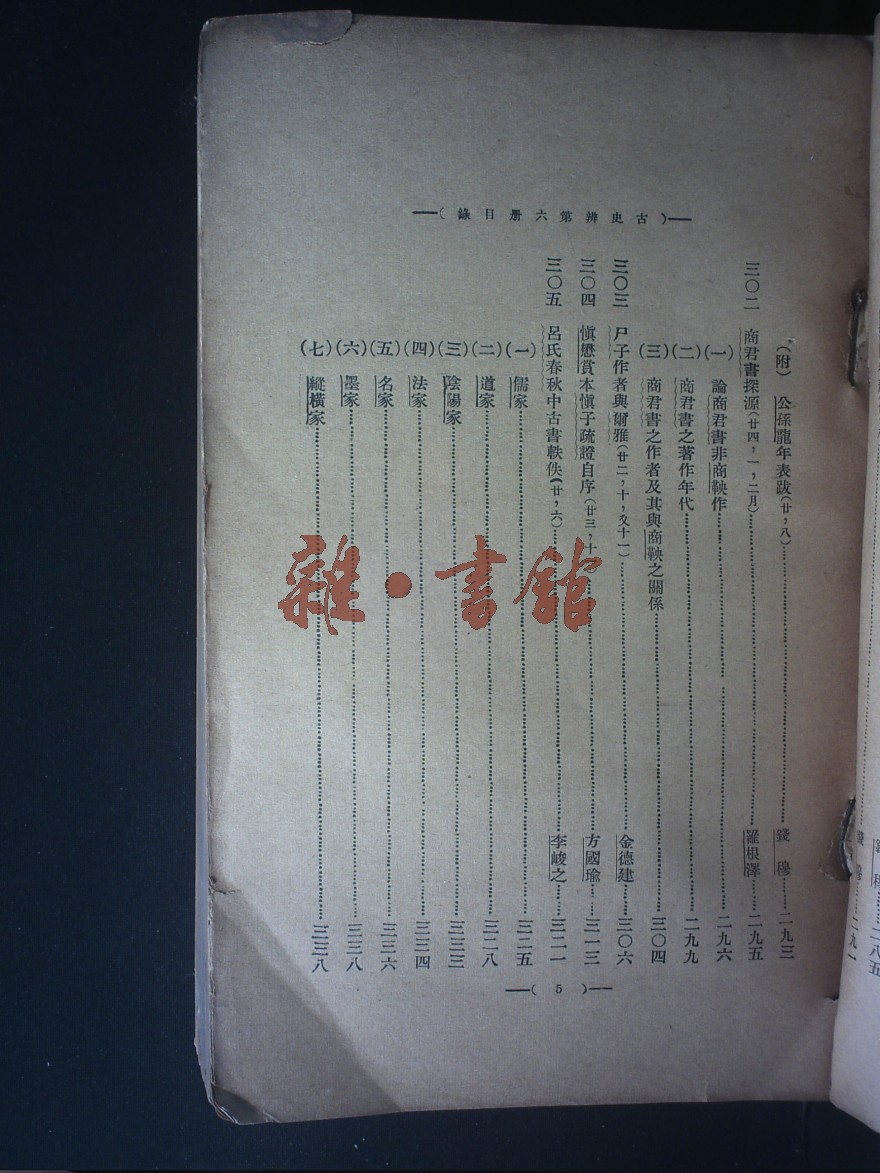 古史辨第六册目錄
(附) 公孫龍年表跋(廿,八) 錢穆 二九三
三〇二 商君書探源(廿四,一,二月) 羅根澤 二九五
(一) 論商君書非商鞅作 二九六
(二) 商君書之著作年代 二九九
(三) 商君書之作者及其與商鞅之關係 三〇四
三〇三 尸子作者與爾雅(廿二,十,又十一) 金德建 三〇六
三〇四 愼懋賞本愼子疏證自序(廿三,十 方國瑜 三一三
三〇五 呂氏春秋中古書輯佚(廿,六) 李峻之 三二一
(一) 儒家 三二五
(二) 道家 三二八
(三) 陰陽家 三三三
(四) 法家 三三四
(五) 名家 三三六
(六) 墨家 三三八
(七) 縱橫家 三三八
(5)
雜·書館